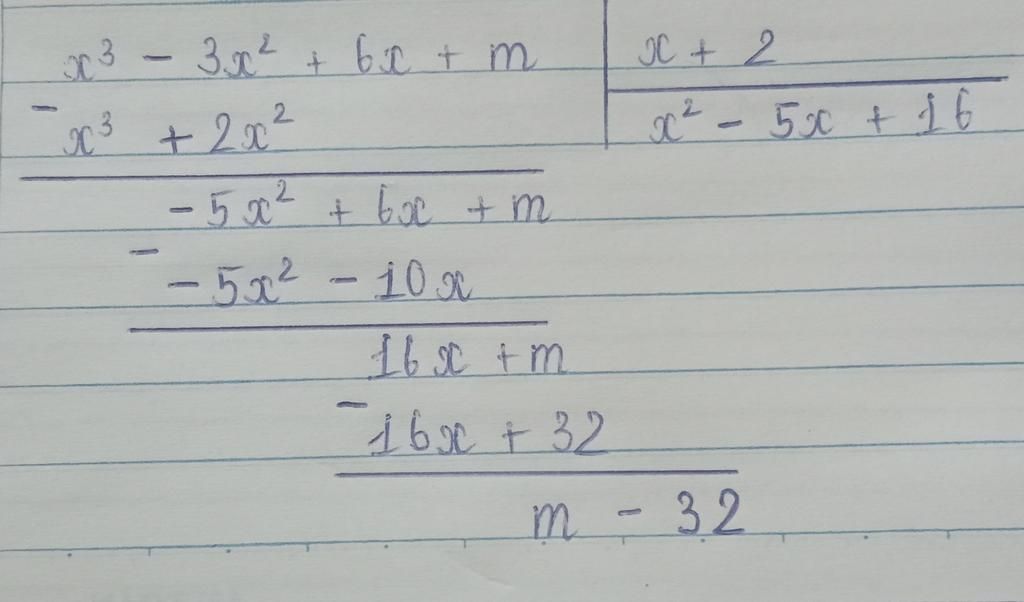 x³ - 3x² + 6x + m
x + 2
- x³ + 2x²
x² - 5x + 16
- 5x² + 6x + m
- - 5x² - 10x
16x + m
- 16x + 32
m - 32